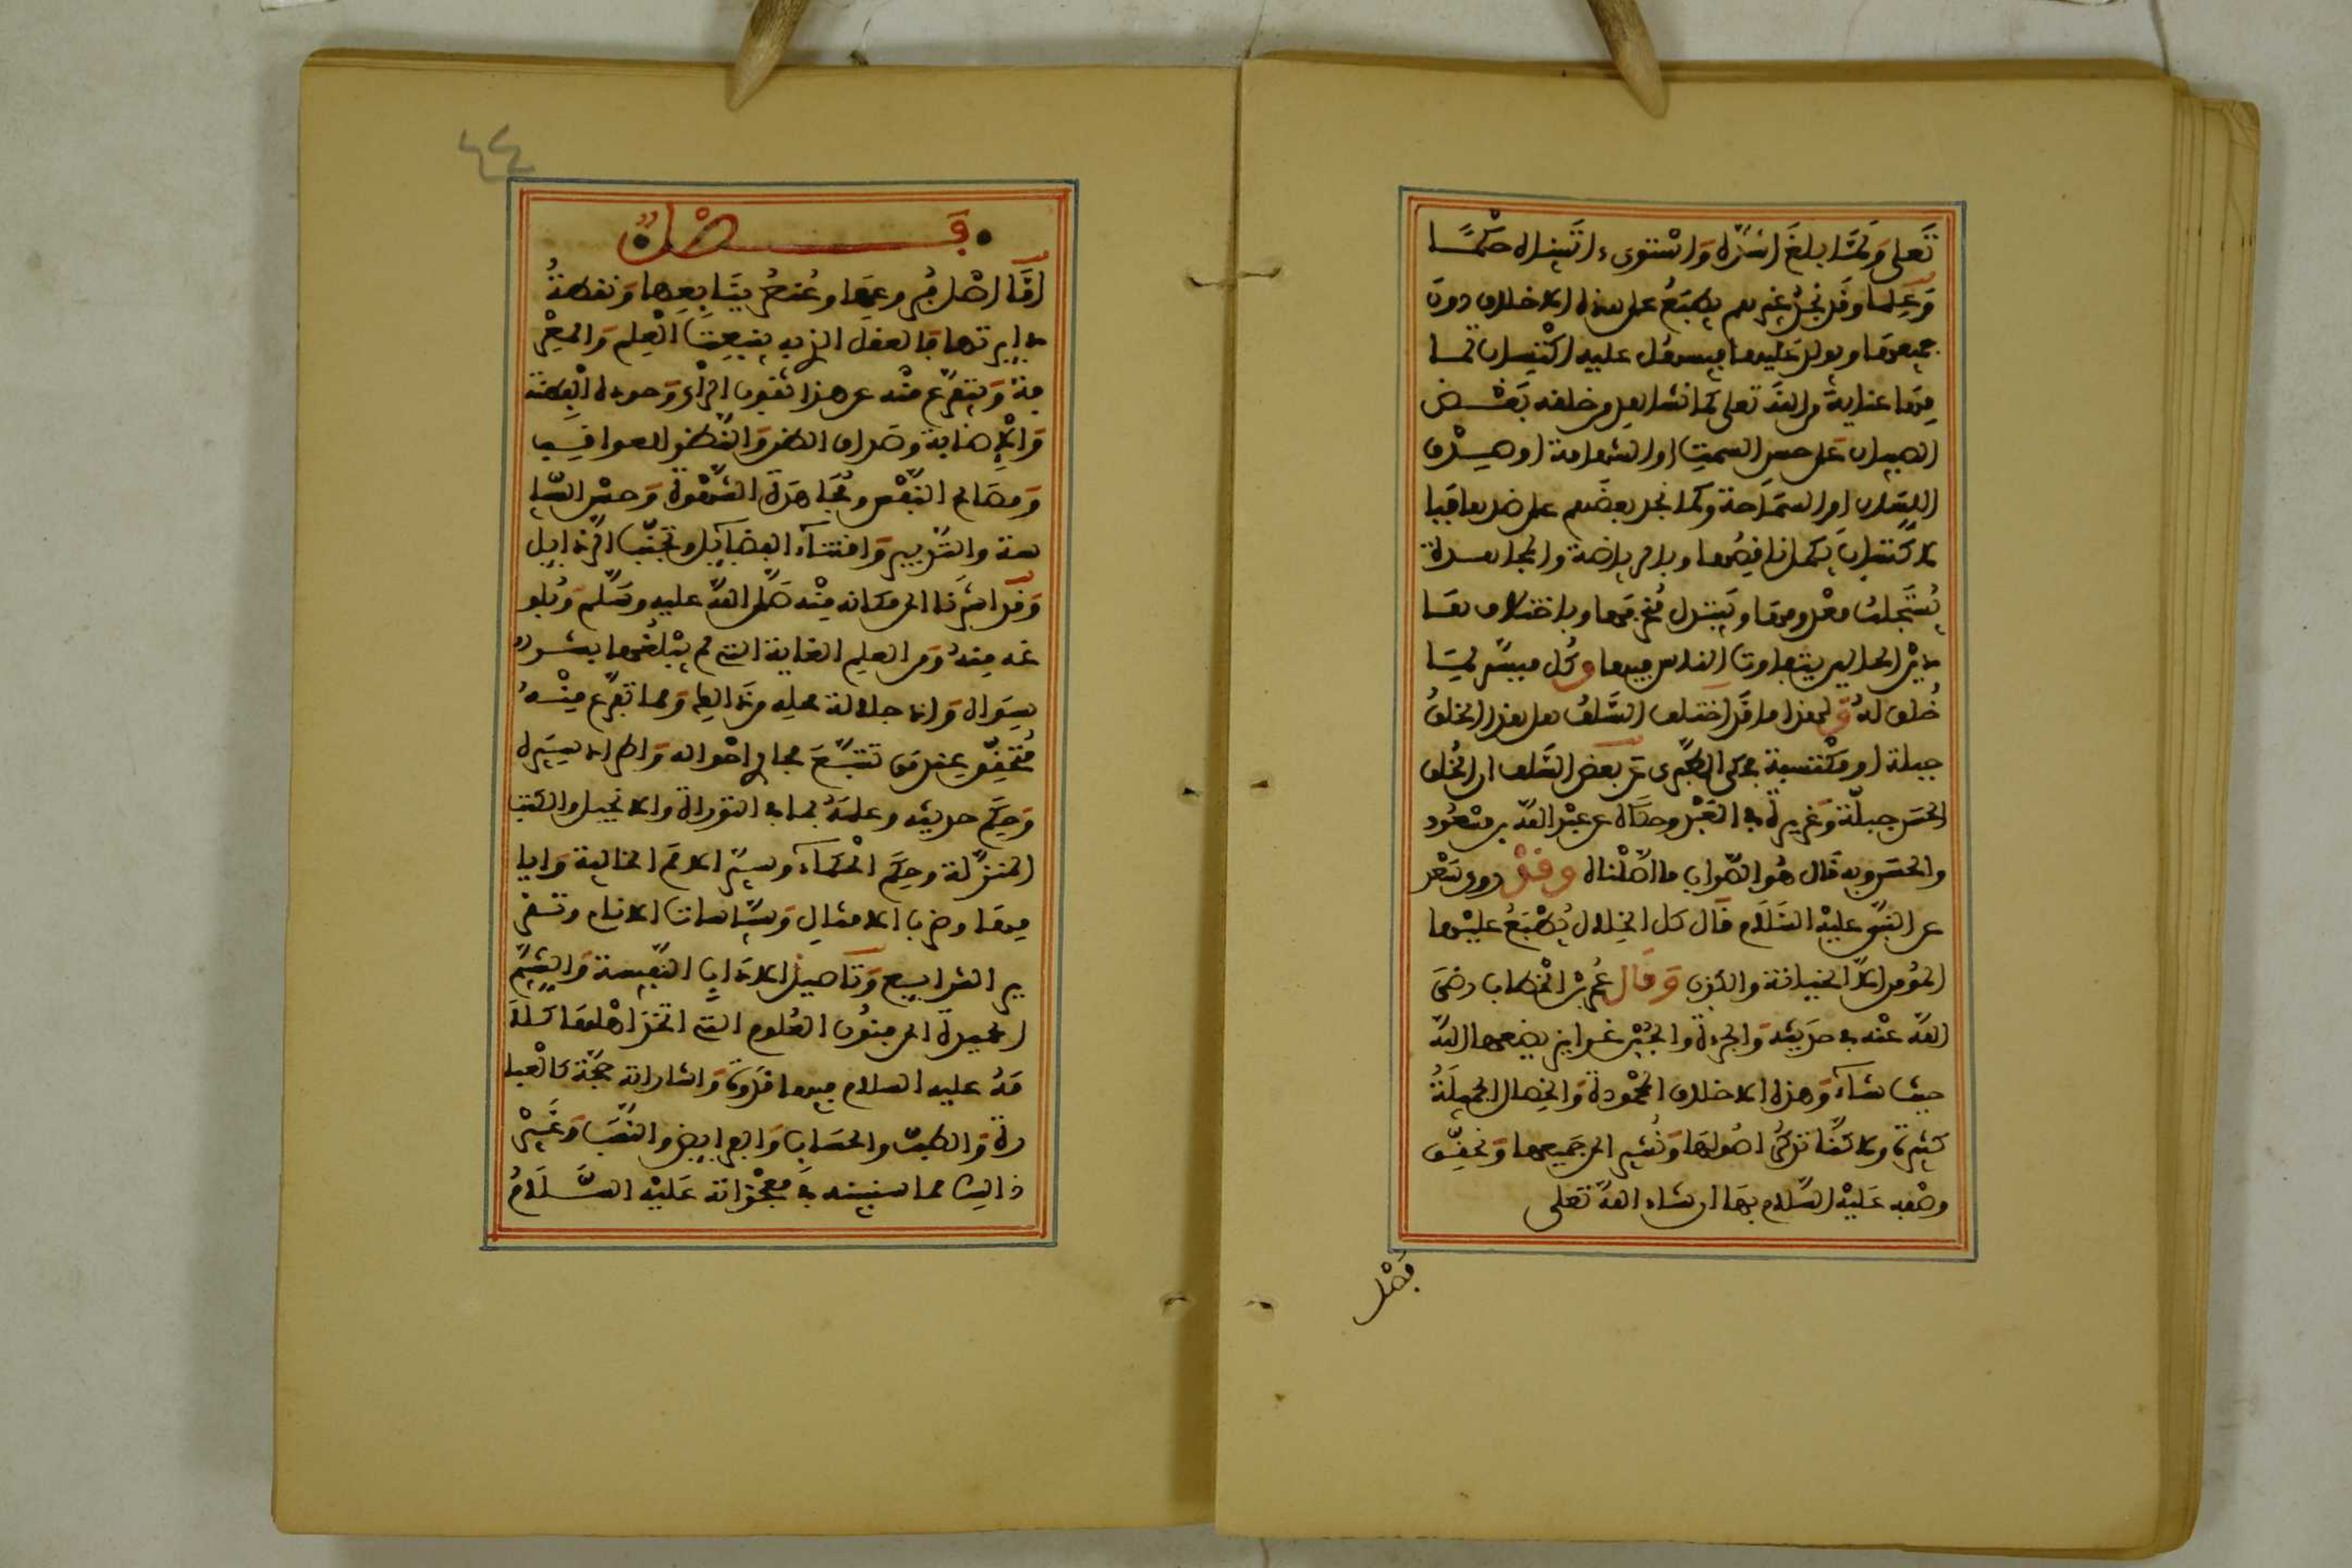 تَعلى وَلَمَّا بلغَ اشدّه وَاسْتوىء اتَيناه حكْمًا
وَعِلما وقد نجد غيرهم يطبَعُ على هذه الاخلاق دون
جميعها ويولد عَليها فيسهل عليه اكْتساب تما
مها عناية من الله تعلى كما نشاهد من خلقه بَعْض
الصبيان على حسن السمتِ او الشهامة او صدق
اللسان او السمَاحة وكما نجد بعضَهم على ضدها فبا
لاكتساب يكمل ناقصُها وبالرياضة والمجاهدة
يُستَجلب معْدومها ويَعتدل مُنحرفها وباختلاف هذ
ين الحالين يتفاوت الناس فيها وكُل ميسّر لما
خُلق لهُ وَلهذا ما قد اختلف السَّلفُ هل هذا الخلقُ
جبلة او مكْتسبة فحكى الطَّبَرى عَن بعض السَّلف ان الخُلق
الحسَن جبلّة وَغريزة في العَبْد وحكاه عن عبْد اللّه بن مسْعُود
والحسَن وبه قَال هُو الصَّواب ما اصَّلْناه وقدْ روى سَعْد
عن النبىّ عليْه السَّلَام قال كل الخِلال يُطْبَعُ عليْها
المُومن الاّ الخيانة والكذب وَقَال عُمر بْن الخْطاب رضىَ
اللّه عنْه في حَديثه وَالجرءة والجُبْن غرايز يضعها اللّه
حيث شاءَ وَهذه الاخلاق المحْمُودة وَالخِصال الجميلَةُ
كثيرة ولاكنّنا نذكرُ اصُولهَا وَنُشير الى جَميعها وَنحقّق
وصْفه عَليْه السّلام بهَا ان شاء اللّه تعلى
فَصْل
٤٤
فَصْلٌ
امَّا اصْل فُروعهَا وعُنصُر ينَابِعِها وَنقطةُ
دايرتها فَالعقل الذي به ينبعِث الْعِلم وَالمعْر
فة وَيتفرّع منْه عن هذا ثقوب الرَّأي وَجودة الْفِطنة
وَالاِصابة وصَدق الظن وَالنَّظر للعواقِب
وَمصَالح النَّفْس ومُجَاهدة الشَّهْوة وَحسْن السّيا
سة والتّدبير وَاقتناء الفضَايِل وتجنّب الرّذايل
وَقد اشرْنا الى مكانه منْه صَلى اللّه عليه وسَلم وَبُلو
غه منهُ وَمن العلم الغاية التي لم يَبْلغها بشر
سِوَاه وَاذ جلالة محله من ذَالك وَمما تفرّع منْهُ
مُتَحقّق عِند مَن تتبّعَ مجارى احْواله وَاطراد سِيَره
وَحِكَم حديثه وعلمَهُ بما في التوراة والانجيل والكتب
المنزَّلة وحِكَم الْحُكماء وسيَر الامَم الخالية وَايا
مها وضرب الامثال وَسِيَاسات الانام وتقر
ير الشرايع وَتَاصيل الادَاب النَّفيسة وَالشِيَم
الحميدة الى فنُون العُلوم التي اتخذ اهْلها كلَامَ
هُ عليه السلام فيها قدْوة وَاشاراته حجّة كالْعبا
رة وَالطبّ والحسَاب وَالفرايض والنسَب وَغَيْر
ذالك مما سنبينه في معْجزاته عَليْه السَّلَامُ